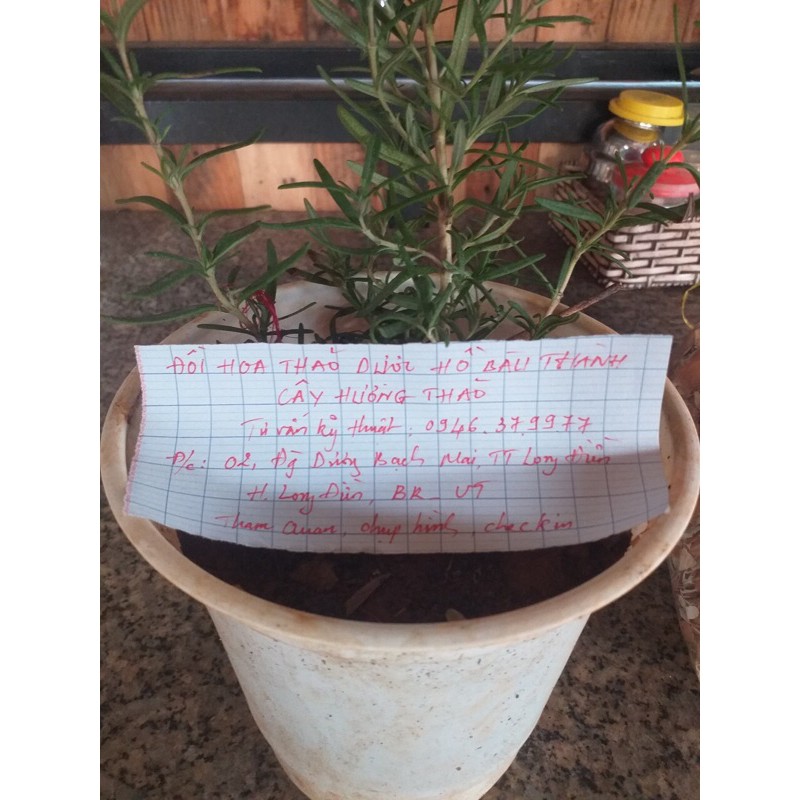 ĐỒI HOA THẢO DƯỢC HỒ BÀU THÀNH
CÂY HƯƠNG THẢO
Tư vấn kỹ thuật: 0946.37.9977
Đ/c: 02, Dương Bạch Mai, TT Long Điền
H. Long Điền, BR_VT
Tham Quan, chụp hình, checkin